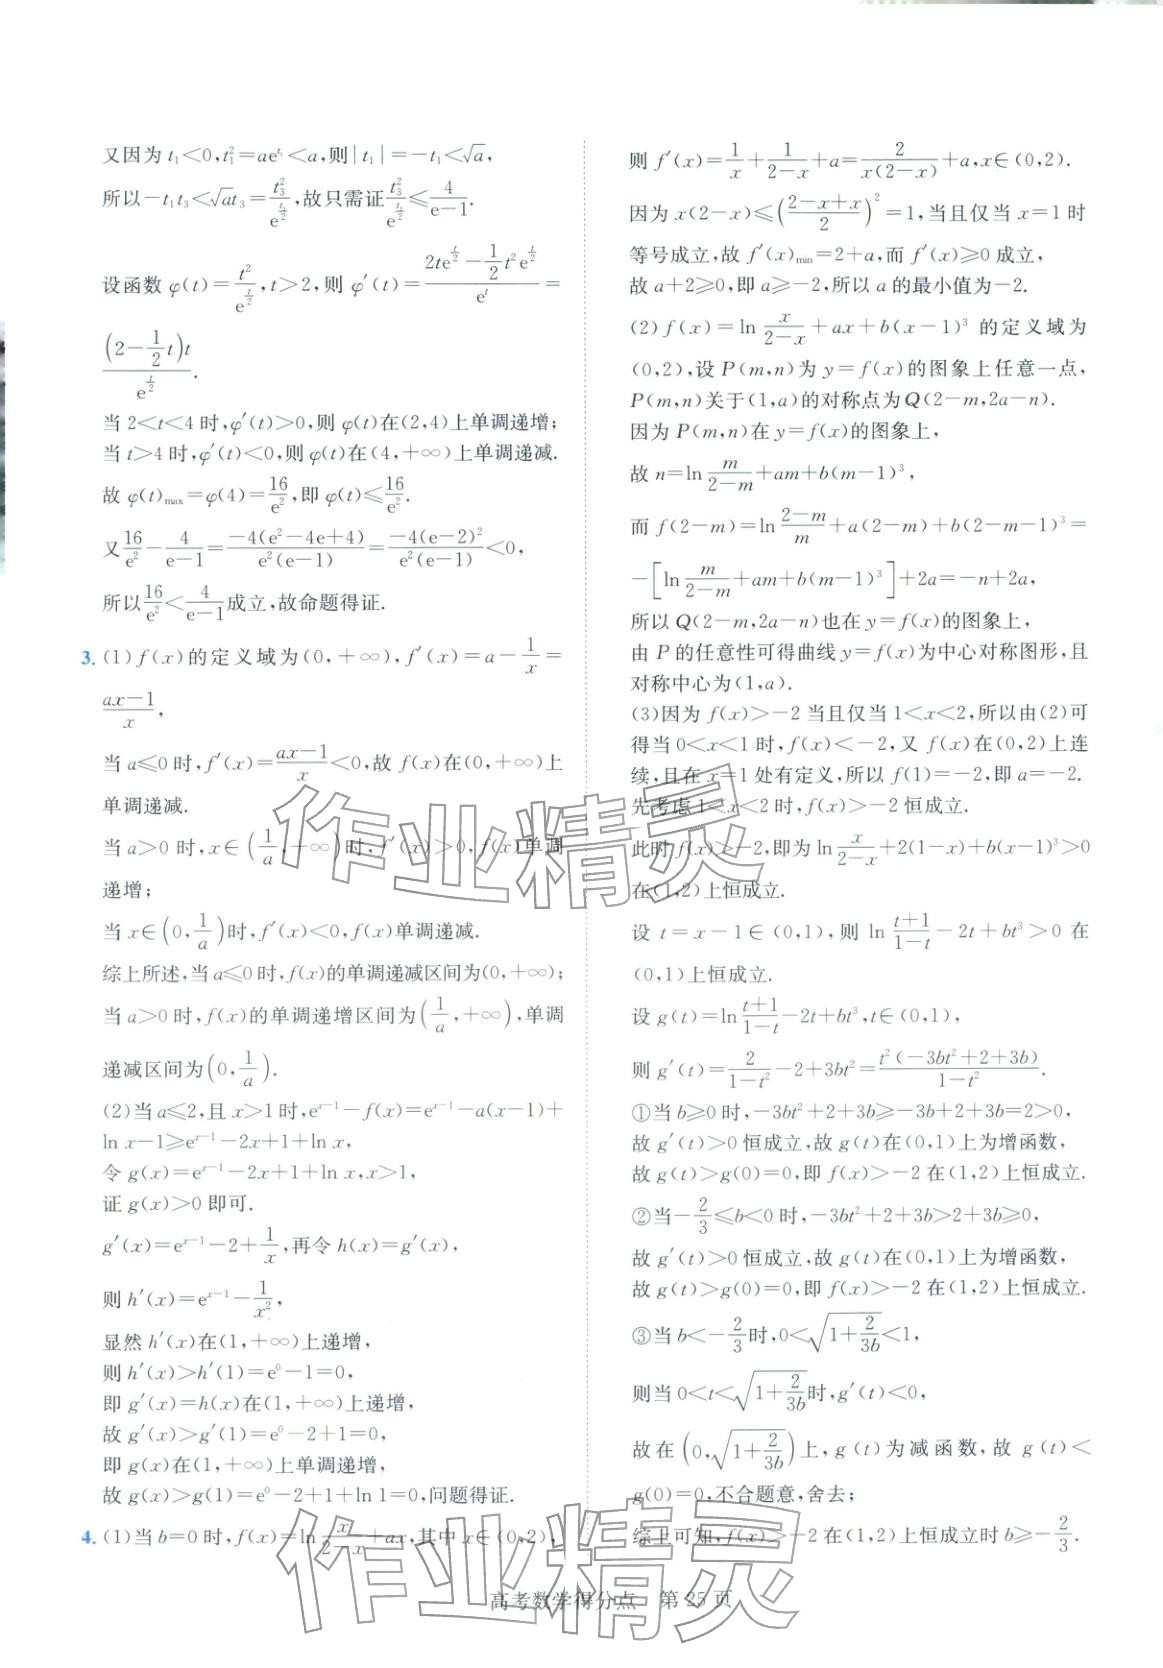 又因为 t₁<0,t₁²=ae^{t₁}<a,则|t₁|=-t₁<√a,
所以-t₁t₃<√a t₃=t₃²/e^{t₃/2},故只需证t₃²/e^{t₃/2}≤4/(e-1).
设函数 φ(t)=t²/e^{t/2},t>2,则 φ′(t)=(2te^{t/2}-(1/2)t²e^{t/2})/e^t=
((2-(1/2)t)t)/e^{t/2}.
当 2<t<4 时,φ′(t)>0,则 φ(t)在(2,4)上单调递增;
当 t>4 时,φ′(t)<0,则 φ(t)在(4,+∞)上单调递减.
故 φ(t)max=φ(4)=16/e²,即 φ(t)≤16/e².
又16/e²-4/(e-1)=-4(e²-4e+4)/(e²(e-1))=-4(e-2)²/(e²(e-1))<0,
所以16/e²<4/(e-1)成立,故命题得证.
3. (1)f(x)的定义域为(0,+∞),f′(x)=a-1/x=
(ax-1)/x,
当 a≤0 时,f′(x)=(ax-1)/x<0,故 f(x)在(0,+∞)上
单调递减.
当 a>0 时,x∈(1/a,+∞)时,f′(x)>0,f(x)单调
递增;
当 x∈(0,1/a)时,f′(x)<0,f(x)单调递减.
综上所述,当 a≤0 时,f(x)的单调递减区间为(0,+∞);
当 a>0 时,f(x)的单调递增区间为(1/a,+∞),单调
递减区间为(0,1/a).
(2)当 a≤2,且 x>1 时,e^{x-1}-f(x)=e^{x-1}-a(x-1)+
ln x-1≥e^{x-1}-2x+1+ln x,
令 g(x)=e^{x-1}-2x+1+ln x,x>1,
证 g(x)>0 即可.
g′(x)=e^{x-1}-2+1/x,再令 h(x)=g′(x),
则 h′(x)=e^{x-1}-1/x²,
显然 h′(x)在(1,+∞)上递增,
则 h′(x)>h′(1)=e⁰-1=0,
即 g′(x)=h(x)在(1,+∞)上递增,
故 g′(x)>g′(1)=e⁰-2+1=0,
即 g(x)在(1,+∞)上单调递增,
故 g(x)>g(1)=e⁰-2+1+ln 1=0,问题得证.
4. (1)当 b=0 时,f(x)=ln x/(2-x)+ax,其中 x∈(0,2),
则 f′(x)=1/x+1/(2-x)+a=2/(x(2-x))+a,x∈(0,2).
因为 x(2-x)≤((2-x+x)/2)²=1,当且仅当 x=1 时
等号成立,故 f′(x)min=2+a,而 f′(x)≥0 成立,
故 a+2≥0,即 a≥-2,所以 a 的最小值为-2.
(2)f(x)=ln x/(2-x)+ax+b(x-1)³ 的定义域为
(0,2),设 P(m,n)为 y=f(x)的图象上任意一点,
P(m,n)关于(1,a)的对称点为 Q(2-m,2a-n).
因为 P(m,n)在 y=f(x)的图象上,
故 n=ln m/(2-m)+am+b(m-1)³,
而 f(2-m)=ln (2-m)/m+a(2-m)+b(2-m-1)³=
-[ln m/(2-m)+am+b(m-1)³]+2a=-n+2a,
所以 Q(2-m,2a-n)也在 y=f(x)的图象上,
由 P 的任意性可得曲线 y=f(x)为中心对称图形,且
对称中心为(1,a).
(3)因为 f(x)>-2 当且仅当 1<x<2,所以由(2)可
得当 0<x<1 时,f(x)<-2,又 f(x)在(0,2)上连
续,且在 x=1 处有定义,所以 f(1)=-2,即 a=-2.
先考虑 1<x<2 时,f(x)>-2 恒成立.
此时 f(x)>-2,即为 ln x/(2-x)+2(1-x)+b(x-1)³>0
在(1,2)上恒成立.
设 t=x-1∈(0,1),则 ln (t+1)/(1-t)-2t+bt³>0 在
(0,1)上恒成立.
设 g(t)=ln (t+1)/(1-t)-2t+bt³,t∈(0,1),
则 g′(t)=2/(1-t²)-2+3bt²=t²(-3bt²+2+3b)/(1-t²).
①当 b≥0 时,-3bt²+2+3b≥-3b+2+3b=2>0,
故 g′(t)>0 恒成立,故 g(t)在(0,1)上为增函数,
故 g(t)>g(0)=0,即 f(x)>-2 在(1,2)上恒成立.
②当-2/3≤b<0 时,-3bt²+2+3b>2+3b≥0,
故 g′(t)>0 恒成立,故 g(t)在(0,1)上为增函数,
故 g(t)>g(0)=0,即 f(x)>-2 在(1,2)上恒成立.
③当 b<-2/3时,0<√(1+2/(3b))<1,
则当 0<t<√(1+2/(3b))时,g′(t)<0,
故在(0,√(1+2/(3b)))上,g(t)为减函数,故 g(t)<
g(0)=0,不合题意,舍去;
综上可知,f(x)>-2 在(1,2)上恒成立时 b≥-2/3.
高考数学得分点 第 25 页
作业精灵
作业精灵